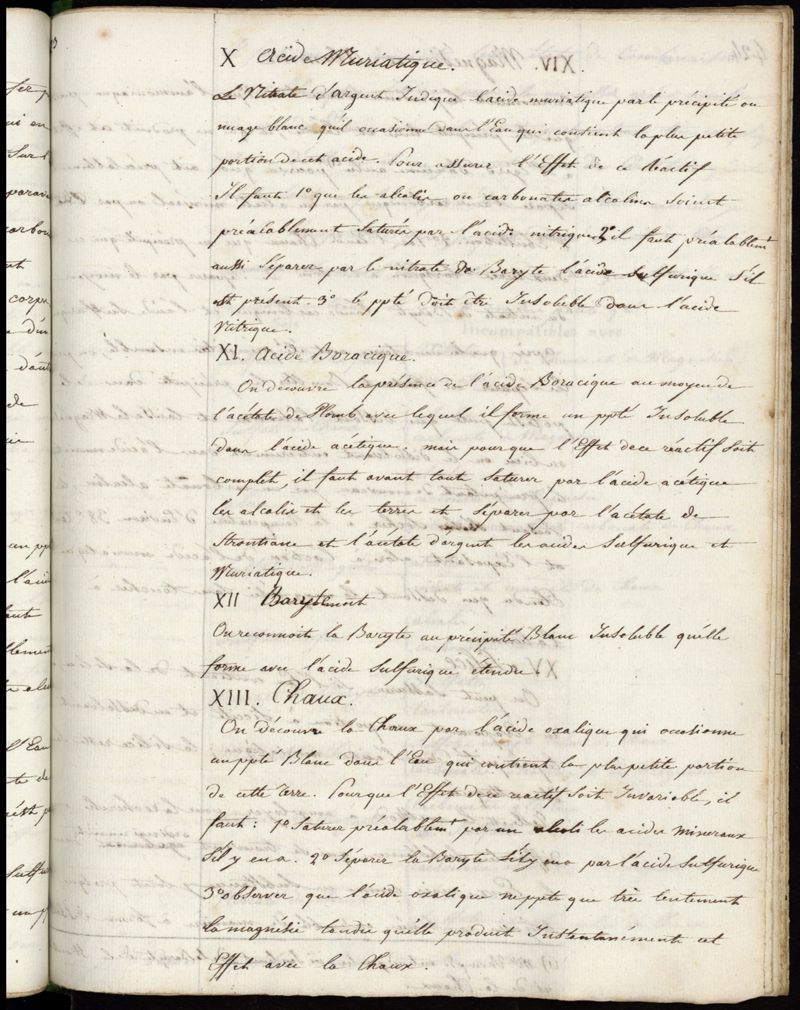 X Acide Muriatique.
Le Nitrate d'argent Indique l'acide muriatique par le précipité ou
nuage blanc qu'il occasionne dans l'Eau qui contient la plus petite
portion de cet acide. Pour assurer l'Effet de ce Réactif
Il faut 1° que les alcalis ou carbonates alcalins soient
préalablement Saturés par l'acide nitrique, 2° il faut préalablemt
aussi Séparer par le nitrate de Baryte l'acide sulfurique S'il
est présent. 3° le ppté doit être Insoluble dans l'acide
Nitrique.
XI. Acide Boracique.
On découvre la présence de l'acide Boracique au moyen de
l'acétate de Plomb avec lequel il forme un ppté Insoluble
dans l'acide acétique. mais pour que l'Effet de ce réactif soit
complet, il faut avant tout Saturer par l'acide acétique
les alcalis et les terres et Séparer par l'acétate de
Strontiane et l'acétate d'argent les acides Sulfurique et
Muriatique.
XII Baryte
On reconnoit la Baryte au précipité Blanc Insoluble qu'elle
forme avec l'acide Sulfurique étendu.
XIII. Chaux.
On découvre la Chaux par l'acide oxalique qui occasionne
un ppté Blanc dans l'Eau qui contient la plus petite portion
de cette Terre. Pour que l'Effet de ce reactif soit Invariable, il
faut: 1° Saturer préalablemt par un alcali les acides mineraux
S'il y en a. 2° Séparer la Baryte S'il y en a par l'acide Sulfurique
3° observer que l'acide oxalique ne ppte que très lentement
la magnésie tandis qu'elle produit Instantanément cet
Effet avec la Chaux.